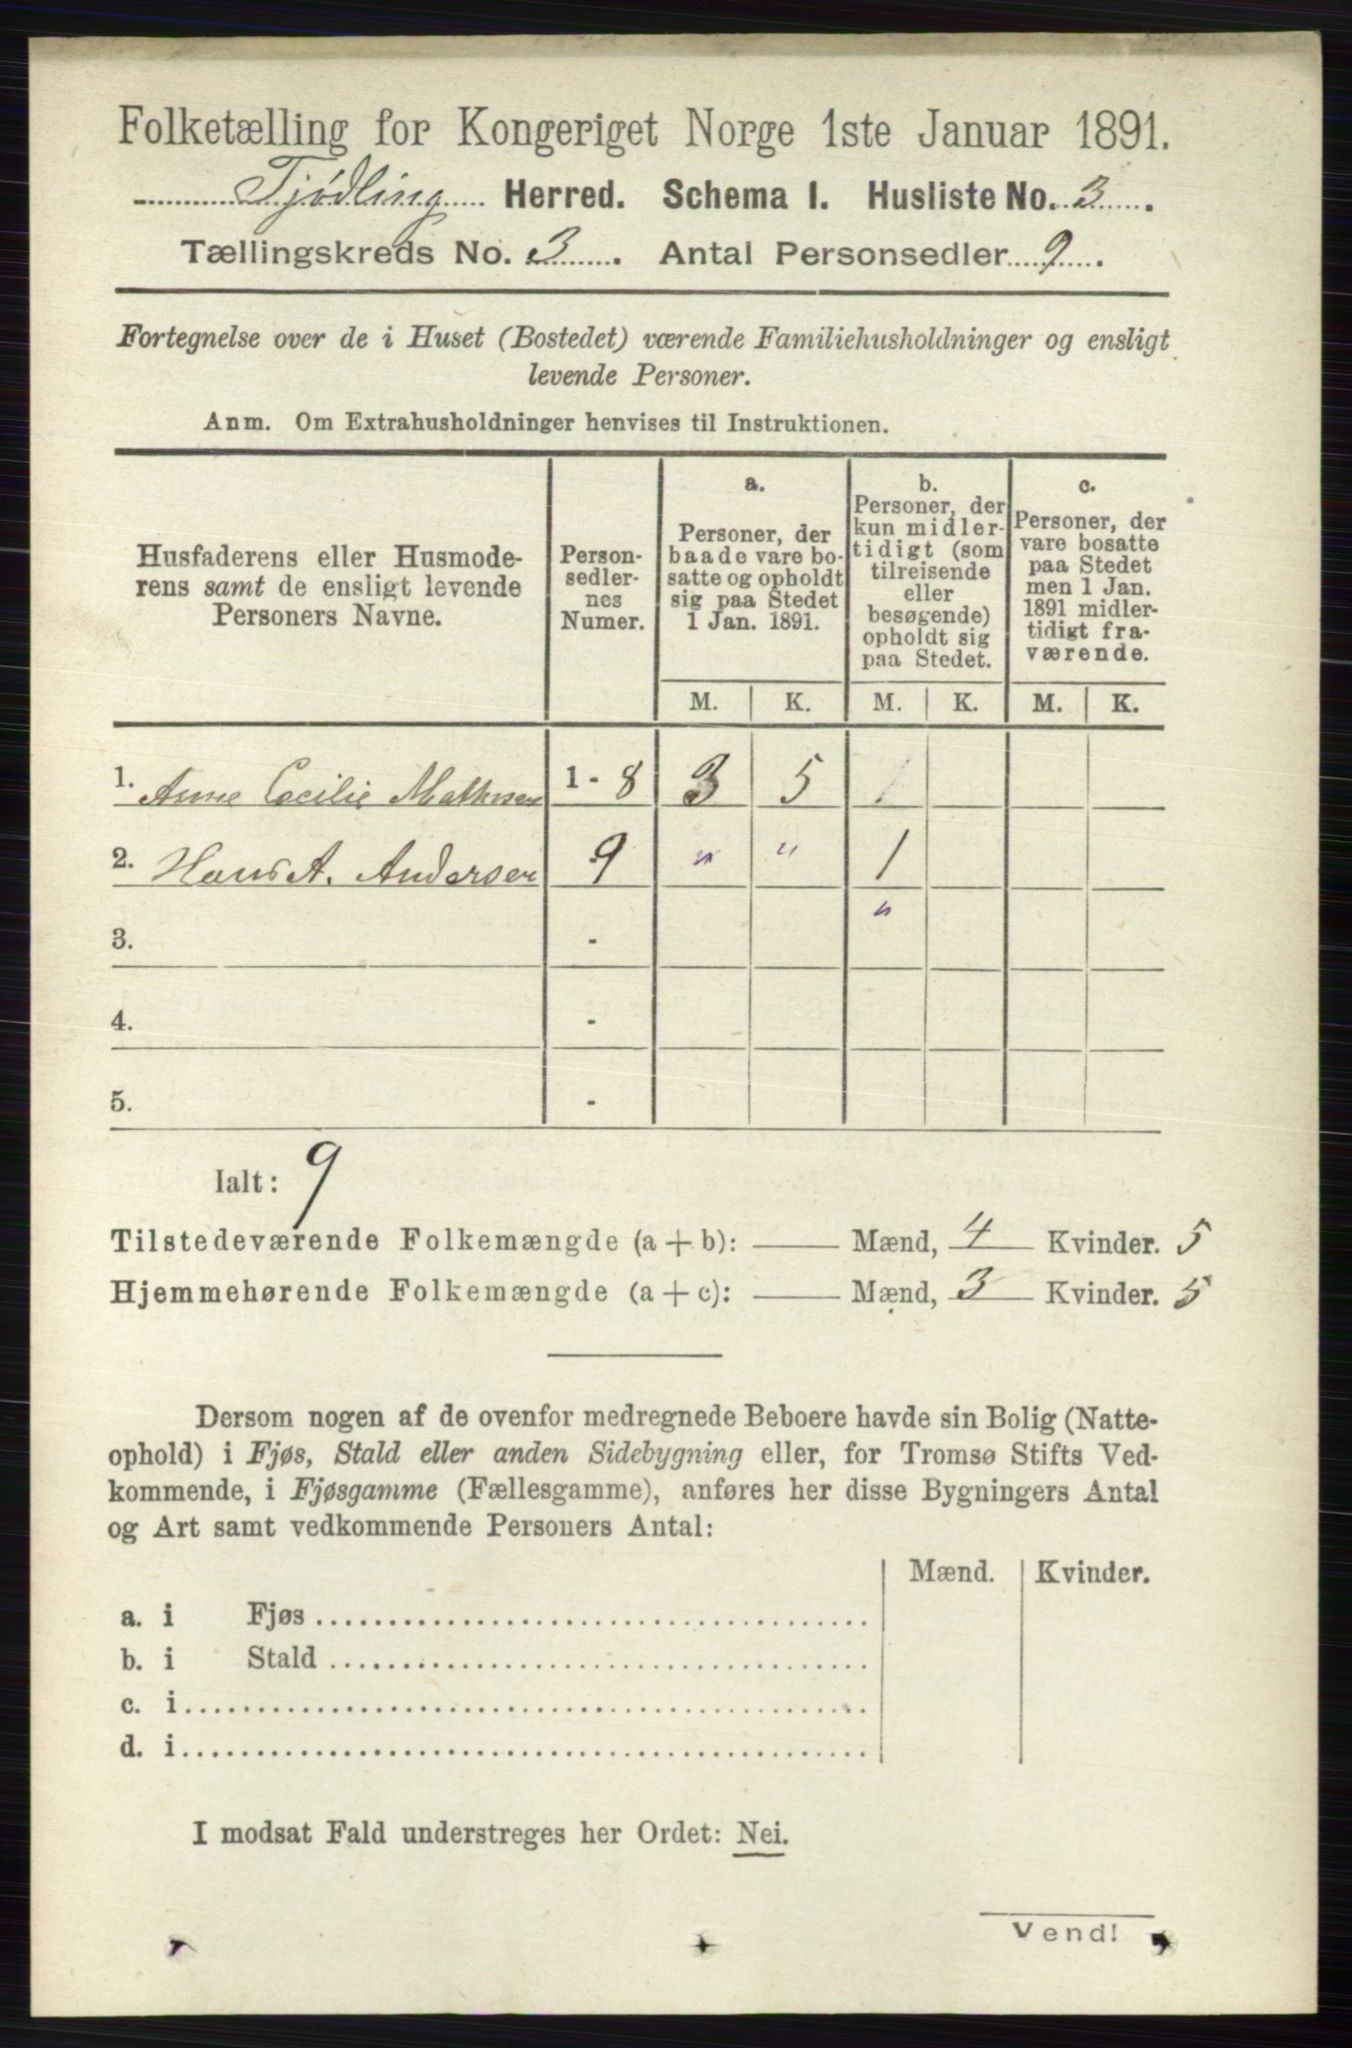 Folketælling for Kongeriget Norge 1ste Januar 1891.
Tjødling Herred. Schema I. Husliste No. 3.
Tællingskreds No. 3. Antal Personsedler 9.
Fortegnelse over de i Huset (Bostedet) værende Familiehusholdninger og ensligt
levende Personer.
Anm. Om Extrahusholdninger henvises til Instruktionen.
Husfaderens eller Husmode-
rens samt de ensligt levende
Personers Navne.
Person-
sedler-
nes
Numer.
a.
Personer, der
baade vare bo-
satte og opholdt
sig paa Stedet
1 Jan. 1891.
b.
Personer, der
kun midler-
tidigt (som
tilreisende
eller
besøgende)
opholdt sig
paa Stedet.
c.
Personer, der
vare bosatte
paa Stedet
men 1 Jan.
1891 midler-
tidigt fra-
værende.
M. K. M. K. M. K.
1. Anne Cecilie Mathisen 1 - 8 3 5 1
2. Hans A. Andersen 9 " " 1
"
3. -
4. -
5. -
Ialt: 9
Tilstedeværende Folkemængde (a + b): Mænd, 4 Kvinder. 5
Hjemmehørende Folkemængde (a + c): Mænd, 3 Kvinder. 5
Dersom nogen af de ovenfor medregnede Beboere havde sin Bolig (Natte-
ophold) i Fjøs, Stald eller anden Sidebygning eller, for Tromsø Stifts Ved-
kommende, i Fjøsgamme (Fællesgamme), anføres her disse Bygningers Antal
og Art samt vedkommende Personers Antal:
Mænd. Kvinder.
a. i Fjøs
b. i Stald
c. i
d. i
I modsat Fald understreges her Ordet: Nei.
Vend!